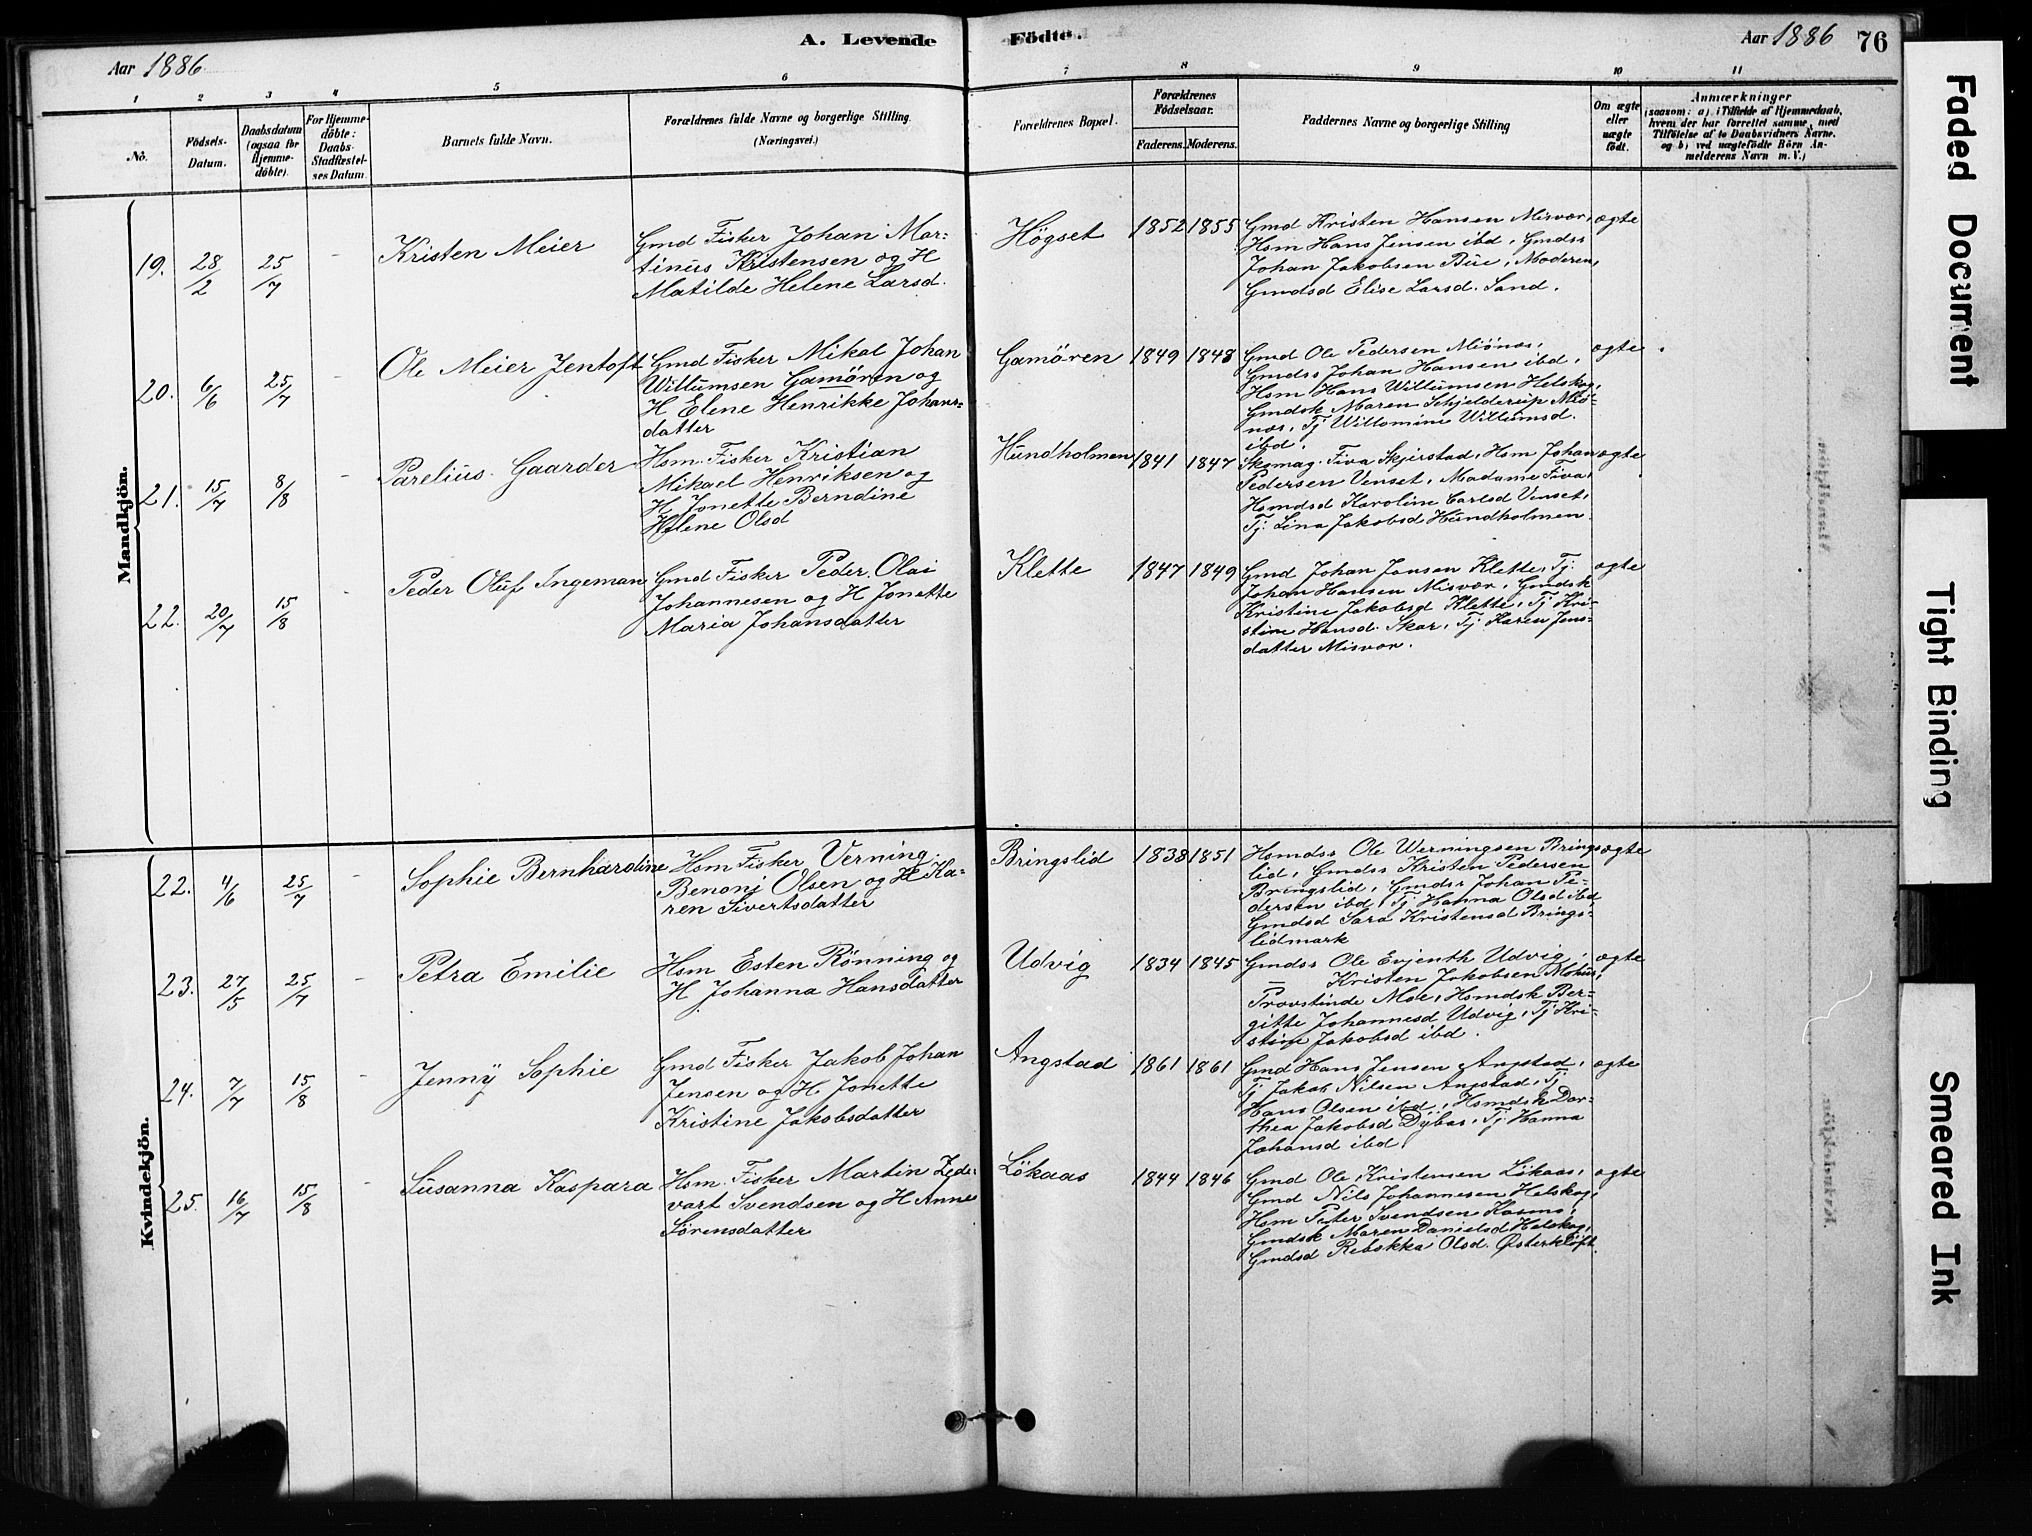 A. Levende
Födte.
Aar 1886
Aar 1886
76
1
2
3
4
5
6
7
8
9
10
11
No.
Födsels-
Datum.
Daabsdatum
(ogsaa for
Hjemme-
döbte).
For Hjemme-
döbte:
Daabs-
Stadfæstel-
ses Datum.
Barnets fulde Navn.
Forældrenes fulde Navne og borgerlige Stilling.
(Næringsvei.)
Forældrenes Bopæl.
Forældrenes
Födselsaar.
Faderens.
Moderens.
Faddernes Navne og borgerlige Stilling
Om ægte
eller
uægte
födt.
Anmærkninger
(saasom: a) i Tilfælde af Hjemmedaab,
hvem der har forrettet samme, med
Tilföielse af to Daabsvidners Navne.
og b) ved uægtefödte Börn An-
melderens Navn m. V.)
Mandkjön.
19.
28/2
25/7
-
Kristen Meier
Gmd Fisker Johan Mar-
tinus Kristensen og H
Matilde Helene Larsd.
Högset
1852
1855
Gmd Kristen Hansen Misvær,
Hsm Hans Jensen ibd, Gmdss
Johan Jakobsen Bue, Moderen,
Gmdsd Elise Larsd. Sand.
ægte
20.
6/6
25/7
-
Ole Meier Jentoft
Gmd Fisker Mikal Johan
Willumsen Gamören og
H Elene Henrikke Johans-
datter
Gamören
1849
1848
Gmd Ole Pedersen Miönes,
Gmdss Johan Hansen ibd,
Hsm Hans Willumsen Helskog,
Gmdsk Maren Schjelderup Miö-
nes, Tj Willomine Willumsd.
ibd.
ægte
21.
15/7
8/8
-
Parelius Gaarder
Hsm. Fisker Kristian
Mikael Henriksen og
H Jonette Berndine
Helene Olsd
Hundholmen
1841
1847
Skomag. Fiva Skjerstad, Hsm Johan
Pedersen Venset, Madame Fiva,
Hsmdsd Karoline Carlsd Venset,
Tj. Lina Jakobsd Hundholmen.
ægte
22.
20/7
15/8
-
Peder Oluf Ingeman
Gmd Fisker Peder Olai
Johannesen og H Jonette
Maria Johansdatter
Klette
1847
1849
Gmd Johan Jonsen Klette, Tj.
Johan Hansen Misvær, Gmdsk
Kristine Jakobsd Klette, Tj Kri-
stine Hansd. Skar, Tj. Karen Jens-
datter Misvær.
ægte
Kvindekjön.
22.
4/6
25/7
-
Sophie Bernhardine
Hsm Fisker Verning
Benonj Olsen og H Ka-
ren Sivertsdatter
Bringslid
1838
1851
Hsmdss Ole Werningsen Brings-
lid, Gmdss Kristen Pedersen
Bringslid, Gmdss Johan Pe-
dersen ibd, Tj Hanna Olsd ibd
Gmdsd Sara Kristensd Brings-
lidmark
ægte
23.
27/5
25/7
-
Petra Emilie
Hsm Esten Rönning og
H Johanna Hansdatter
Udvig
1834
1845
Gmdss Ole Evjenth Udvig,
— Kristen Jakobsen
Provstinde Moe, Hsmdsk Ber-
gitte Johannesd Udvig, Tj Kri-
stine Jakobsd ibd.
ægte
24.
7/7
15/8
-
Jenny Sophie
Gmd Fisker Jakob Johan
Jensen og H Jonette
Kristine Jakobsdatter
Angstad
1861
1861
Gmd Hans Jensen Angstad,
Tj Jakob Nilsen Angstad, Tj.
Hans Olsen ibd, Hsmdsk Dor-
thea Jakobsd Dybas, Tj Hanna
Johansd ibd.
ægte
25.
16/7
15/8
Susanna Kaspara
Hsm Fisker Martin Zede-
vart Svendsen og H Anne
Sörensdatter
Lökaas
1844
1846
Gmd Ole Kristensen Lökaas,
Gmd Nils Johannesen Helskog,
Hsm Peter Svendsen Kasmo,
Gmdsk Maren Danielsd Helskog,
Gmdsd Rebekka Olsd. Østerkløft.
ægte
Faded Document
Tight Binding
Smeared Ink